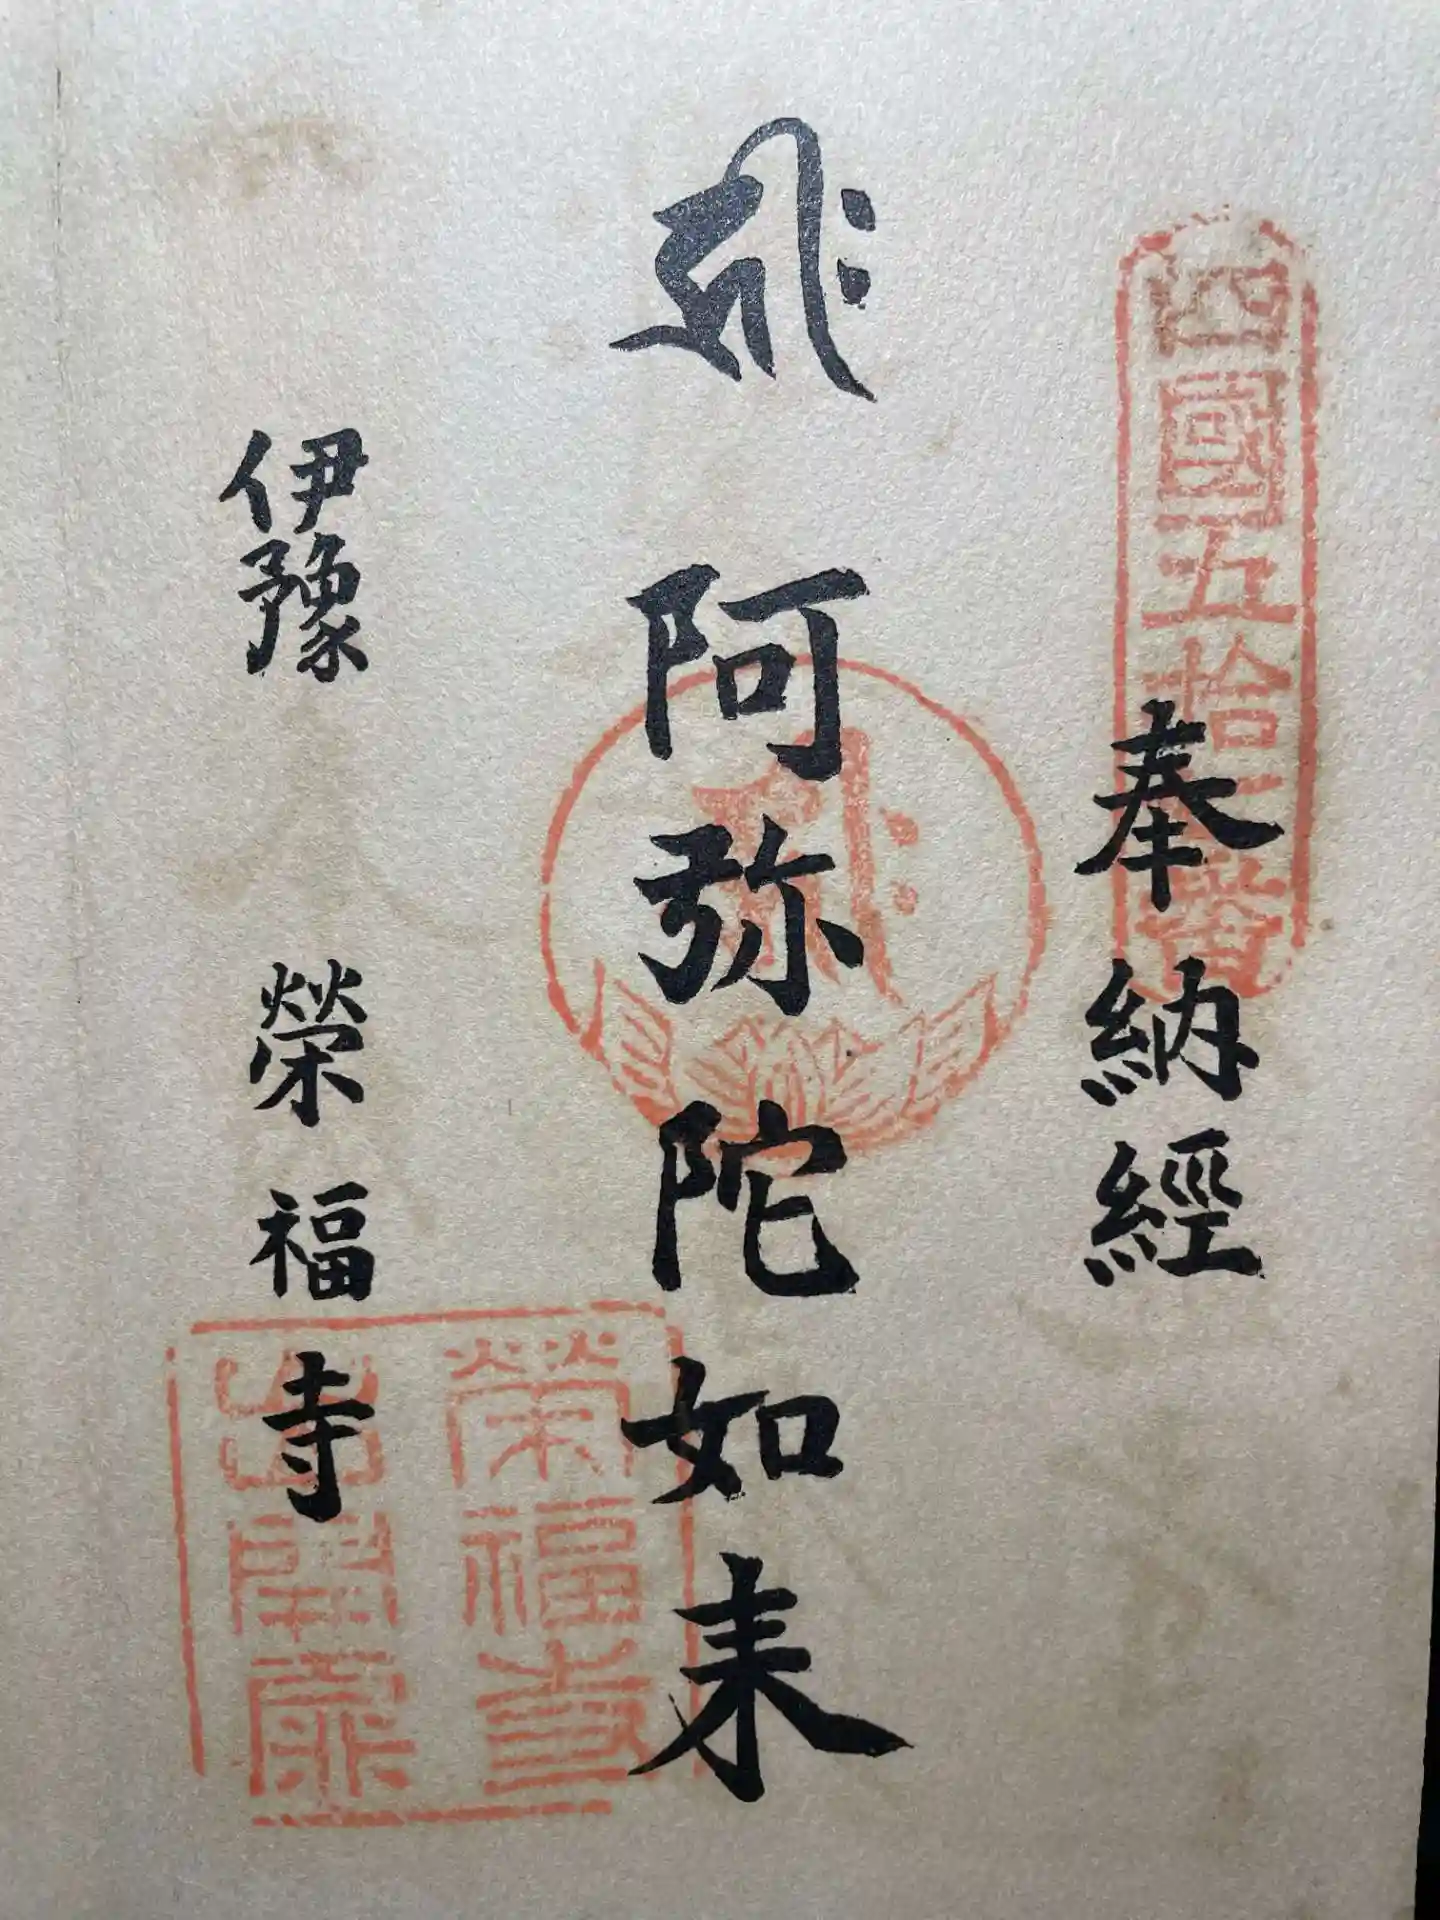 四國五拾
奉納經
阿弥陀如来
伊豫 榮福寺
榮福寺